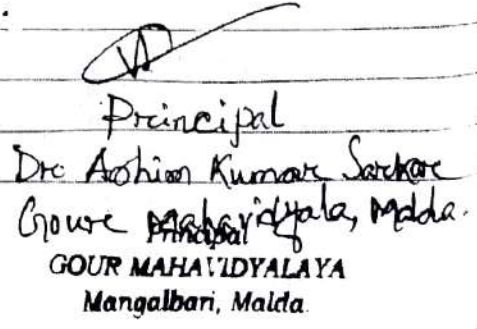 Principal
Dr. Ashim Kumar Sarkar
Gour Mahavidyala, Malda.
Principal
GOUR MAHAVIDYALAYA
Mangalbari, Malda.